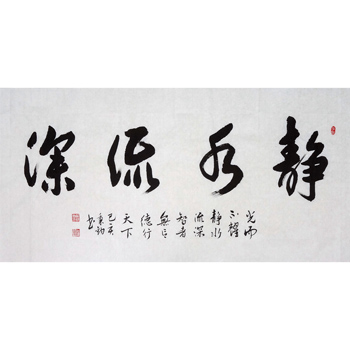 静水流深
光而
不耀
静水
流深
智者
無言
德行
天下
己亥
书